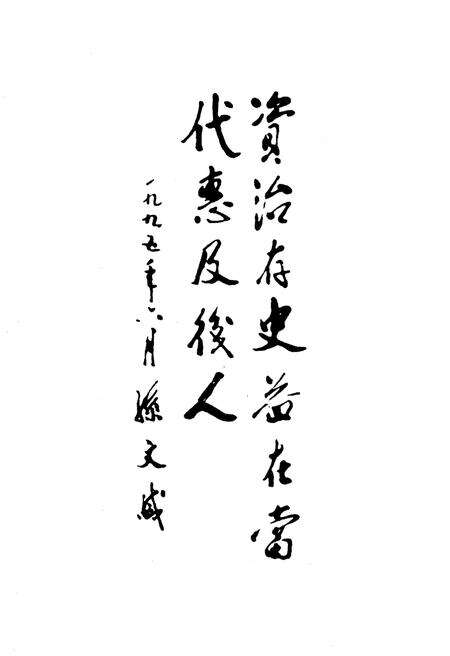 資治存史益在當
代惠及後人
一九九五年六月孫文盛